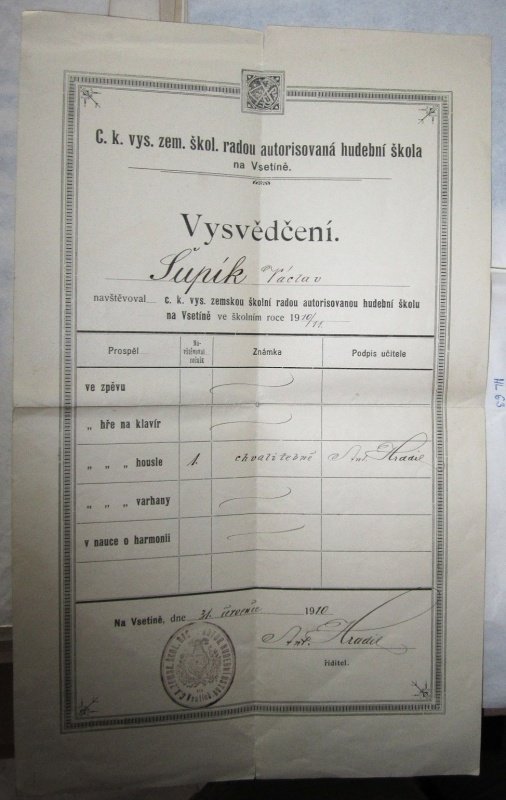 C. k. vys. zem. škol. radou autorisovaná hudební škola
na Vsetíně.
Vysvědčení.
Šupík Václav
navštěvoval c. k. vys. zemskou školní radou autorisovanou hudební školu
na Vsetíně ve školním roce 1910/11.
Prospěl Na-vštěvoval ročník Známka Podpis učitele
ve zpěvu
„ hře na klavír
„ „ „ housle 1. chvalitebně Ant. Hradil
„ „ „ varhany
v nauce o harmonii
Na Vsetíně, dne 31. července 1910
Ant. Hradil
ředitel.
HL 63